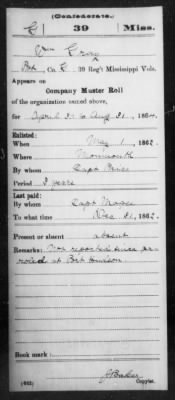 (Confederate.)
C 39 Miss.
Wm Gray
Co. C, 39 Reg't Mississippi Vols.
Appears on
Company Muster Roll
of the organization named above,
for April 30 to Aug 31, 1864.
Enlisted:
When May 1, 1862.
Where Monmouth
By whom Capt
Period 3 years
Last paid:
By whom Capt
To what time Dec 31, 1862.
Present or absent absent
Remarks: Not reported since pa-
roled at Port Hudson
Book mark:
(642) J Baker
Copyist.